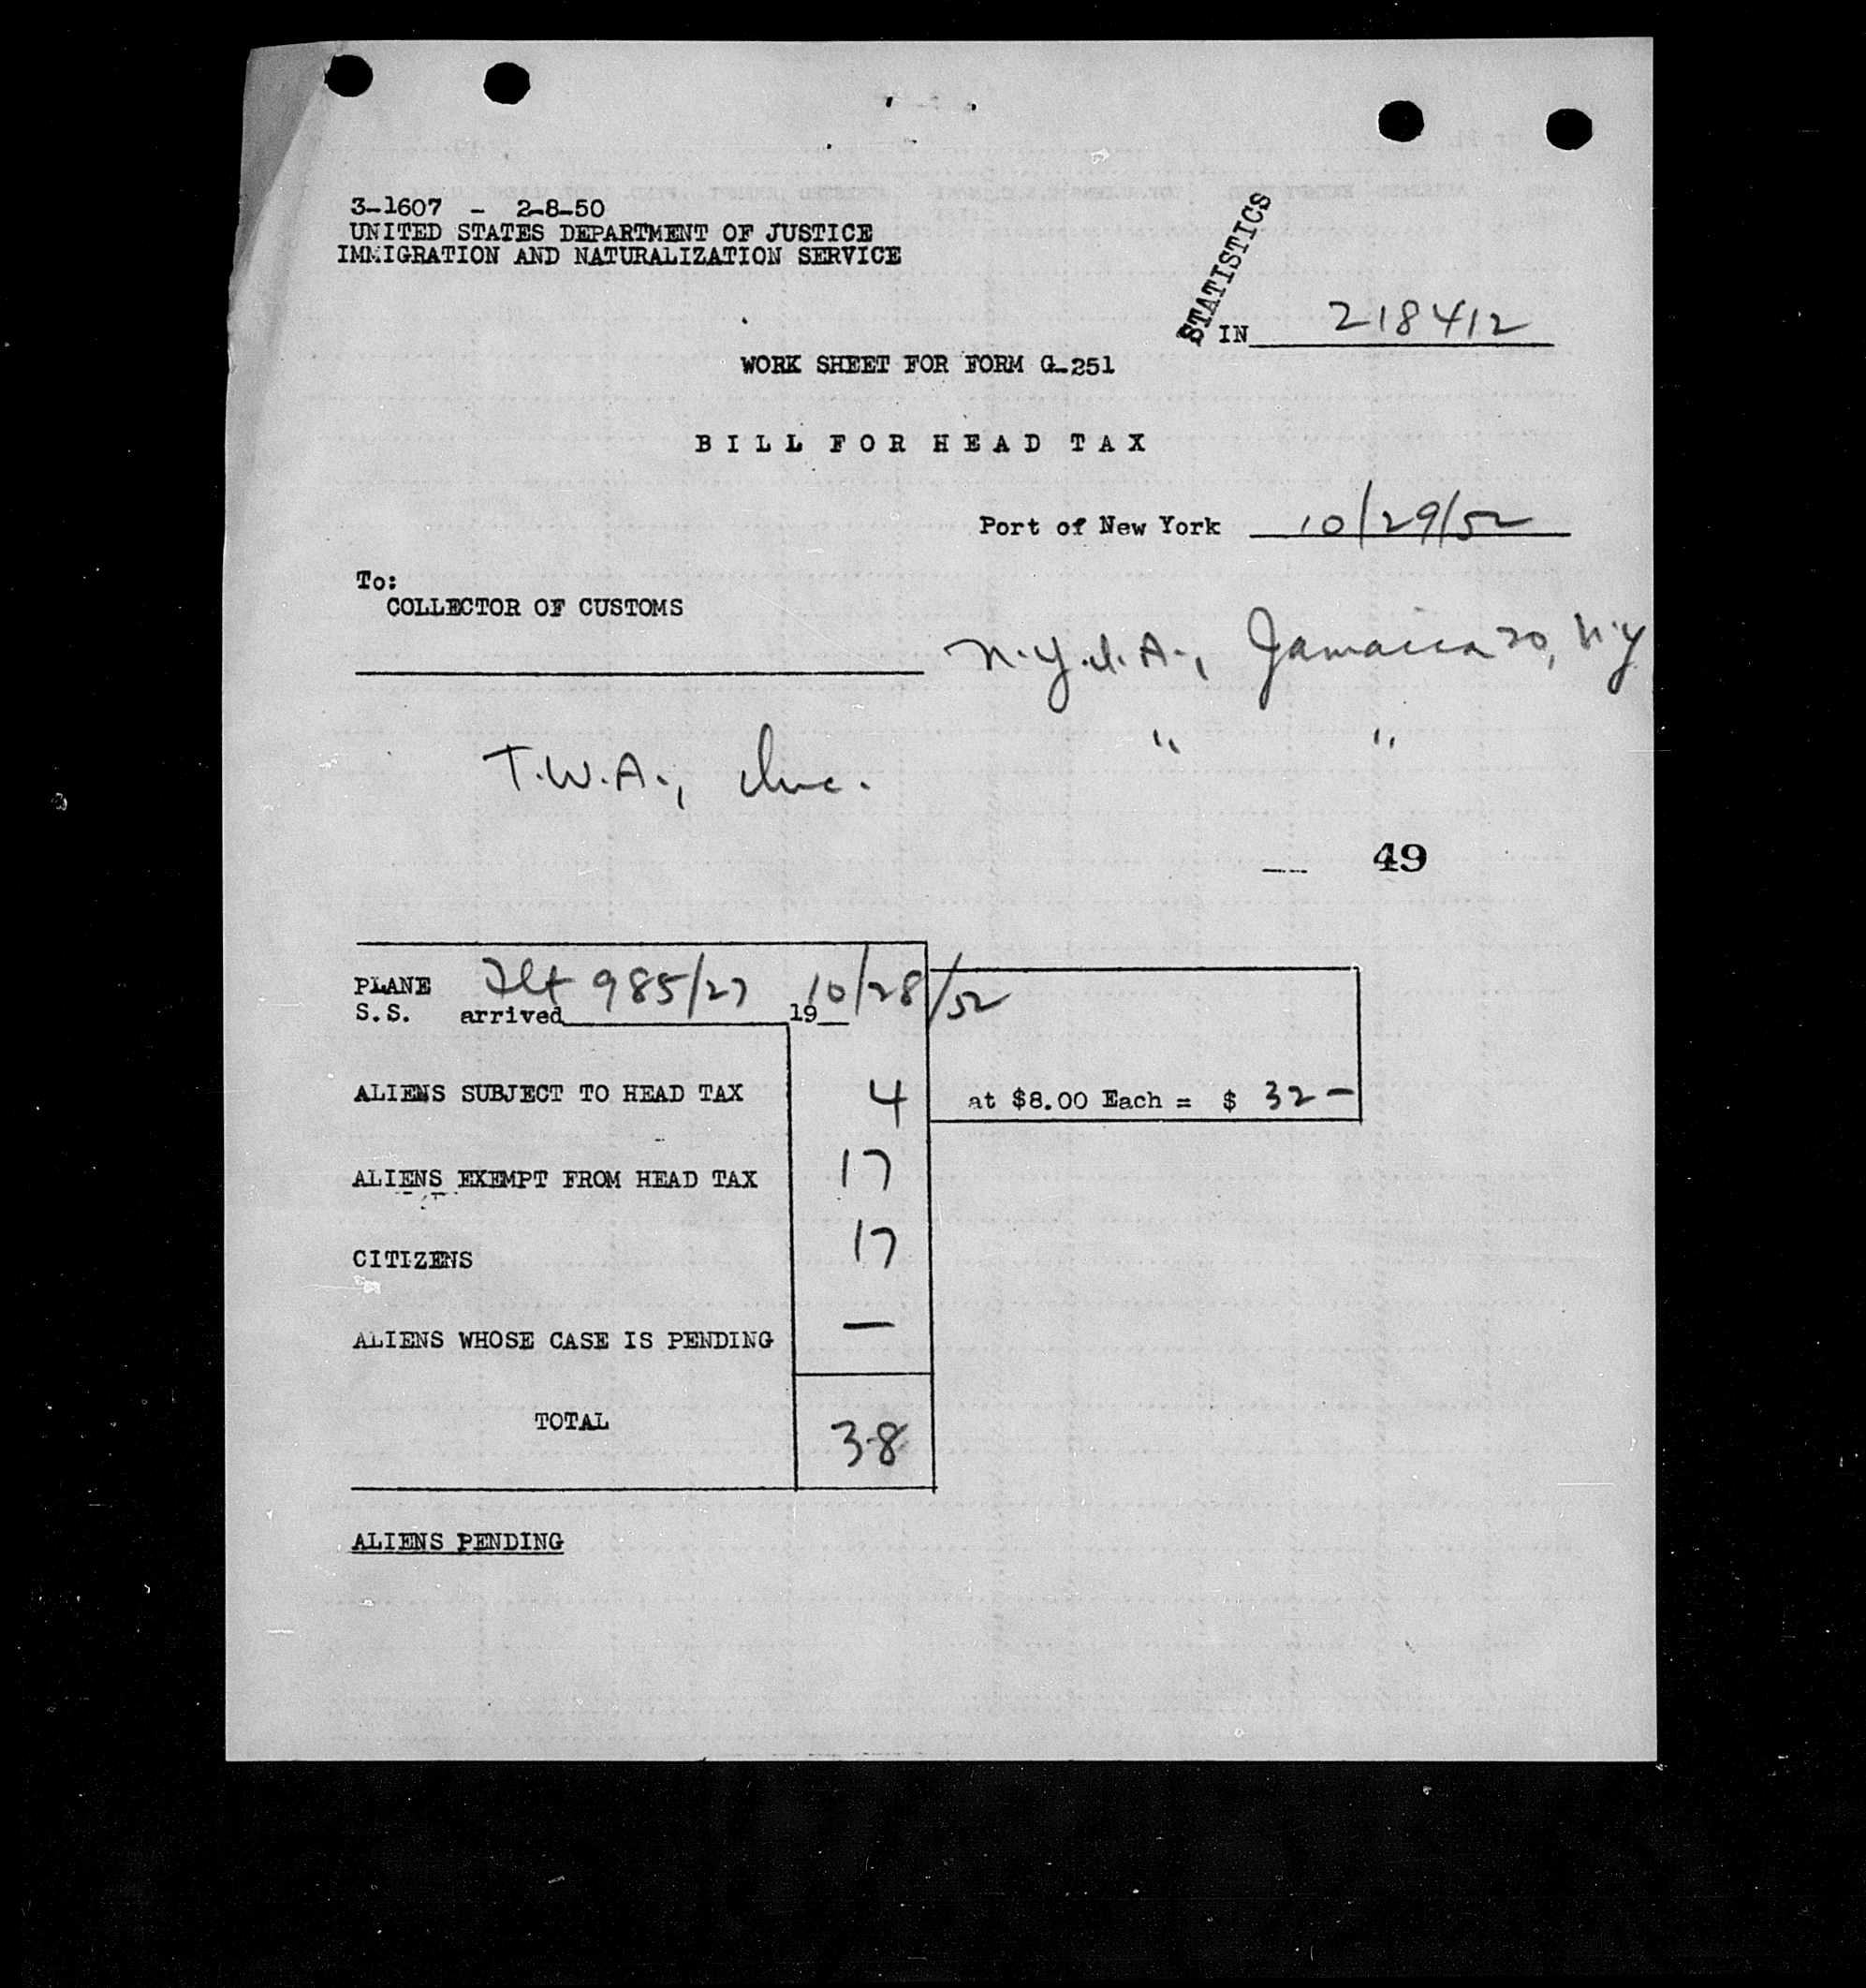 3-1607 - 2-8-50
UNITED STATES DEPARTMENT OF JUSTICE
IMMIGRATION AND NATURALIZATION SERVICE
STATISTICS
IN 218412
WORK SHEET FOR FORM G-251
BILL FOR HEAD TAX
Port of New York 10/29/52
To:
COLLECTOR OF CUSTOMS
N.Y.I.A., Jamaica 30, N.Y
T.W.A., Inc. " "
49
PLANE Flt 985/27 10/28/52
S.S. arrived 19
ALIENS SUBJECT TO HEAD TAX 4 at $8.00 Each = $ 32 -
ALIENS EXEMPT FROM HEAD TAX 17
CITIZENS 17
ALIENS WHOSE CASE IS PENDING —
TOTAL 38
ALIENS PENDING